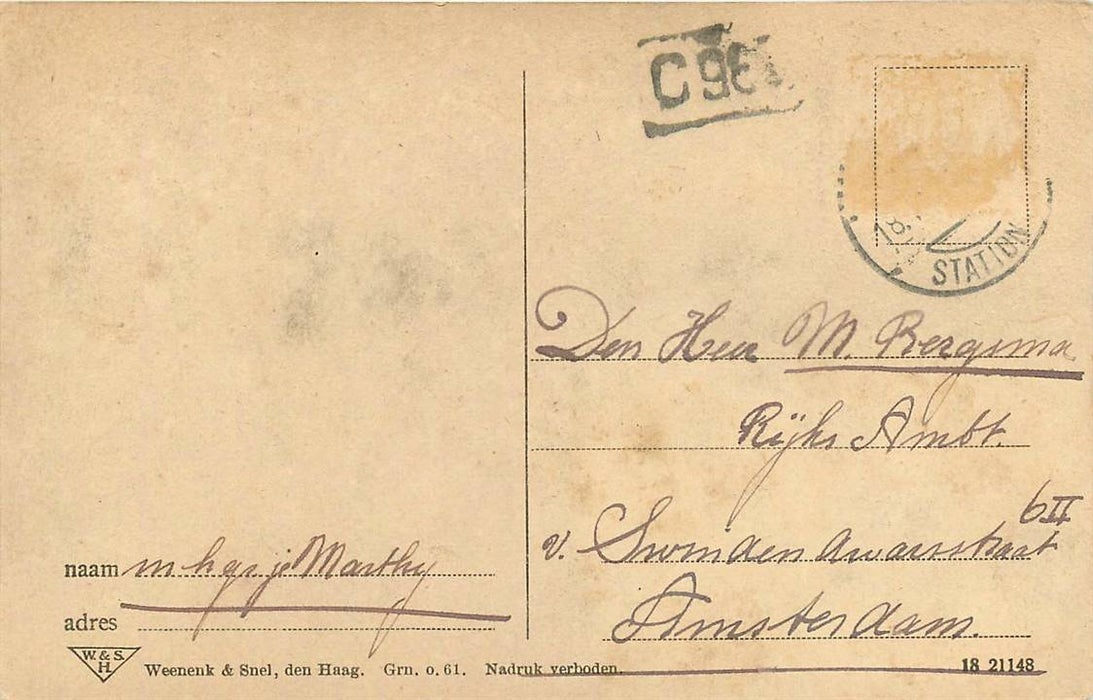 C96
STATION
Den Heer M. Bergsma
Rijks Ambt.
6 II
v. Swindendwarsstraat
Amsterdam.
naam m h gr je Marthy
adres
W. & S.
H
Weenenk & Snel, den Haag. Grn. o. 61. Nadruk verboden.
18 21148